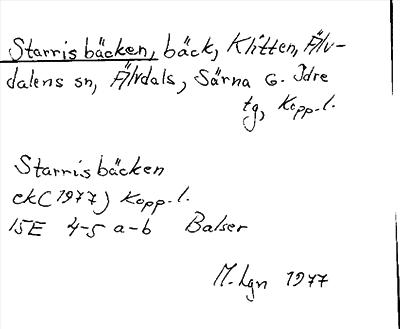 Starrisbäcken, bäck, Klitten, Älv-
dalens sn, Älvdals, Särna o. Idre
tg, Kopp. l.
Starrisbäcken
ek (1977) Kopp. l.
15E 4-5 a-b Balser
M. Lgn 1977